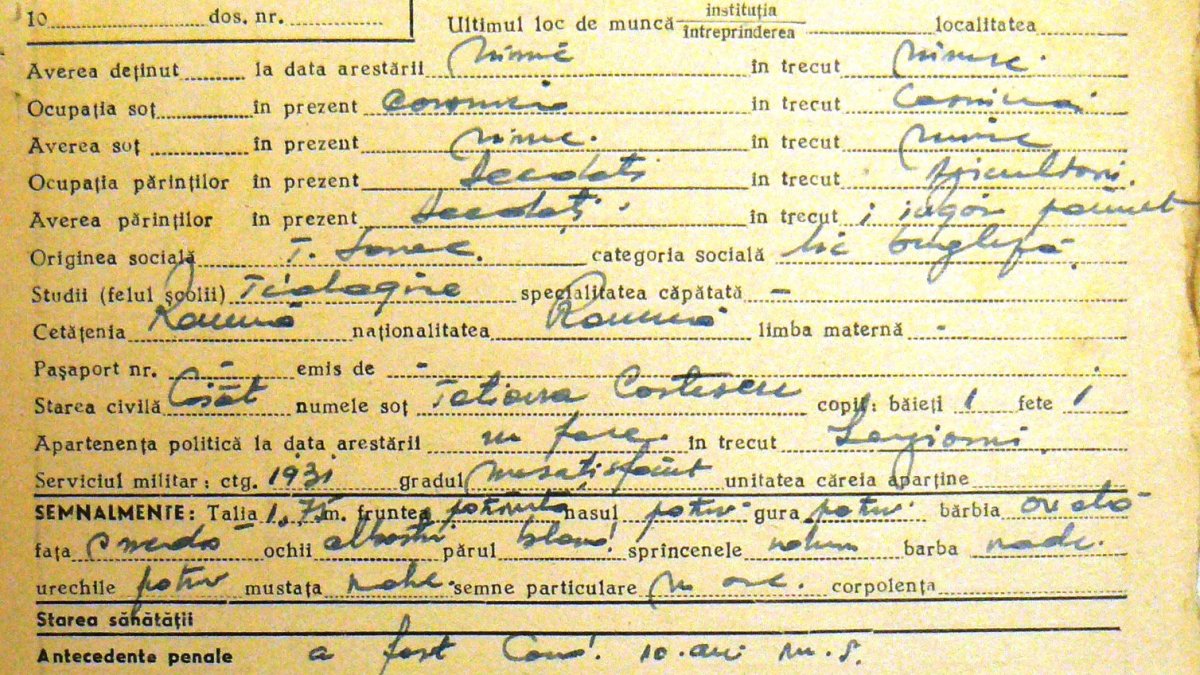 10 dos. nr.
Ultimul loc de muncă instituția întreprinderea localitatea
Averea deținut la data arestării nimic în trecut nimic.
Ocupația soț în prezent în trecut
Averea soț în prezent nimic. în trecut nimic
Ocupația părinților în prezent decedați în trecut agricultori.
Averea părinților în prezent decedați. în trecut 1 iugăr pămînt
Originea socială T. categoria socială mic burgheză.
Studii (felul școlii) specialitatea căpătată -
Cetățenia Română naționalitatea Română limba maternă -
Pașaport nr. - emis de -
Starea civilă Căsăt numele soț Tatiana Costescu copii: băieți 1 fete 1
Apartenența politică la data arestării nu face. în trecut Legionar
Serviciul militar: ctg. 1931 gradul nesatisfăcut unitatea căreia aparține
SEMNALMENTE: Talia 1,75 m. fruntea potrivită nasul potriv. gura potriv. bărbia ovală
fața ochii albaștri părul blond sprincenele barba rade.
urechile potriv mustața rade. semne particulare nu are. corpolența
Starea sănătății
Antecedente penale a fost Cond. 10. ani m.s.